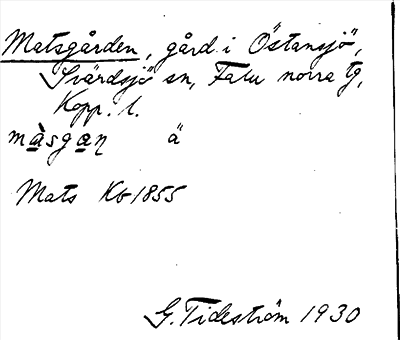 Matsgården, gård i Östansjö,
Svärdsjö sn, Falu norra tg,
Kopp. l.
màsgaη ä
Mats Kb 1855
G. Tideström 1930